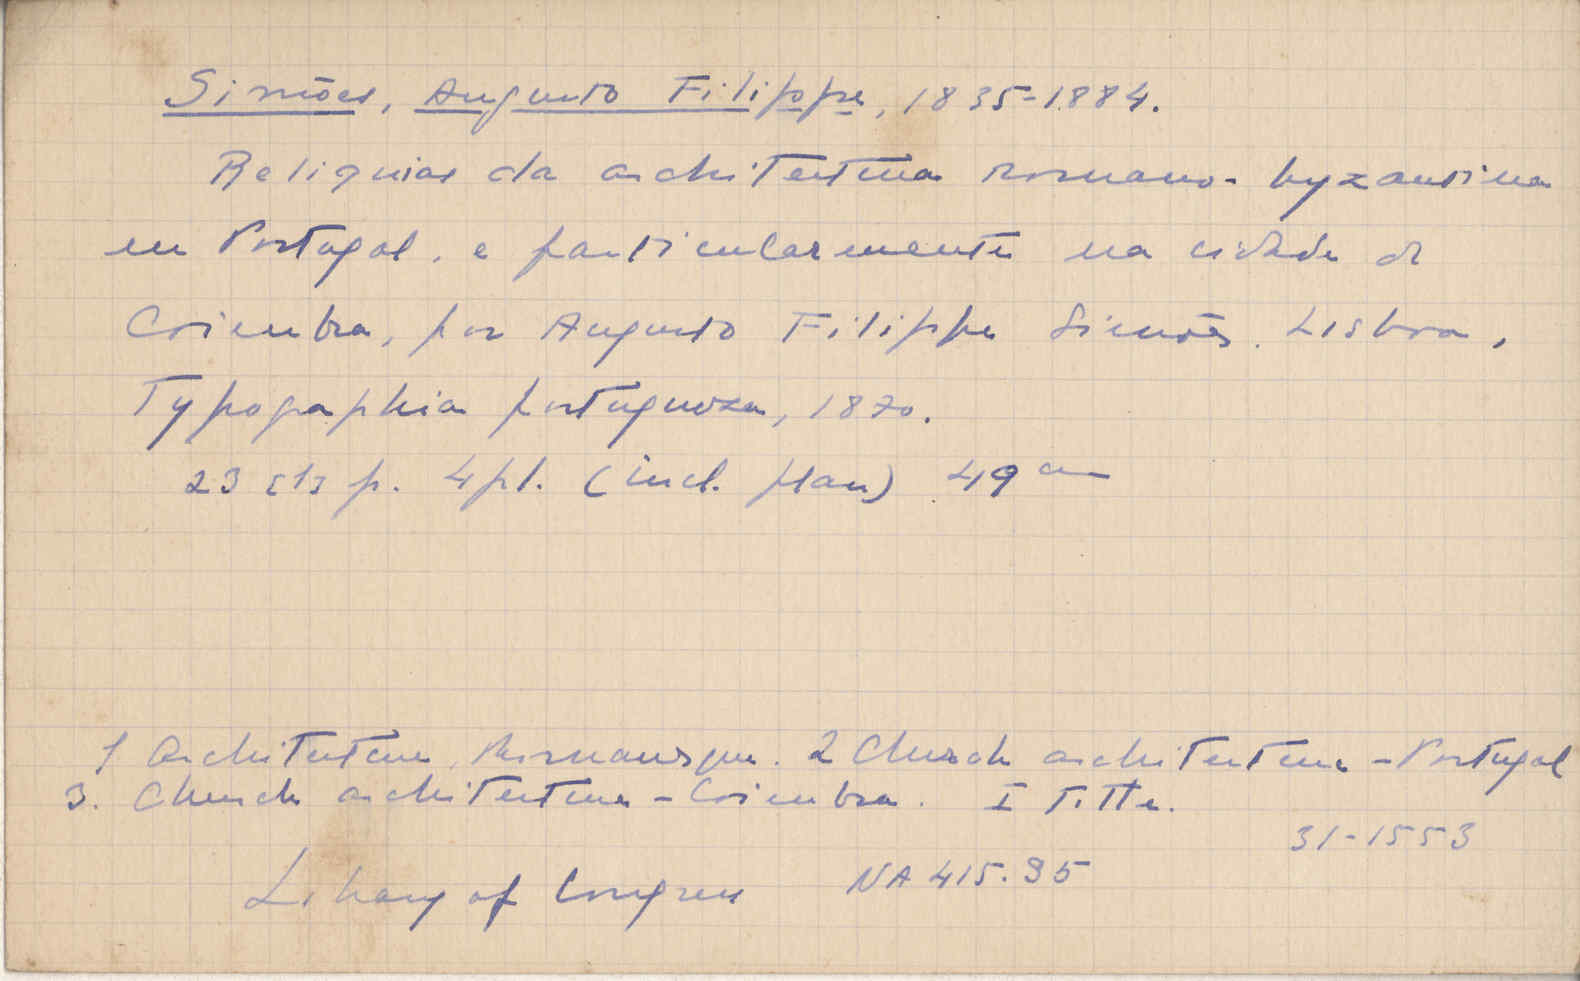 Simões, Augusto Filippe, 1835-1884.
Reliquias da architectura romano-byzantina
em Portugal, e particularmente na cidade de
Coimbra, por Augusto Filippe Simões. Lisboa,
Typographia portugueza, 1870.
23 [1] p. 4 pl. (incl. plan) 49 cm
1 Architecture, Romanesque. 2 Church architecture - Portugal
3. Church architecture - Coimbra. I Title.
31-1553
Library of Congress NA 415.S5